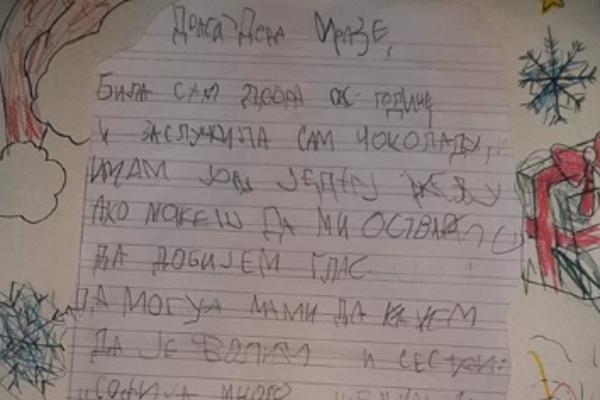 Драга Деда Мразе,
Била сам добра ове године
и заслужила сам чоколаду,
имам још једну жељу
ако можеш да ми
да добијем глас
да могу мами да кажем
да је волим и сестри
Софија много